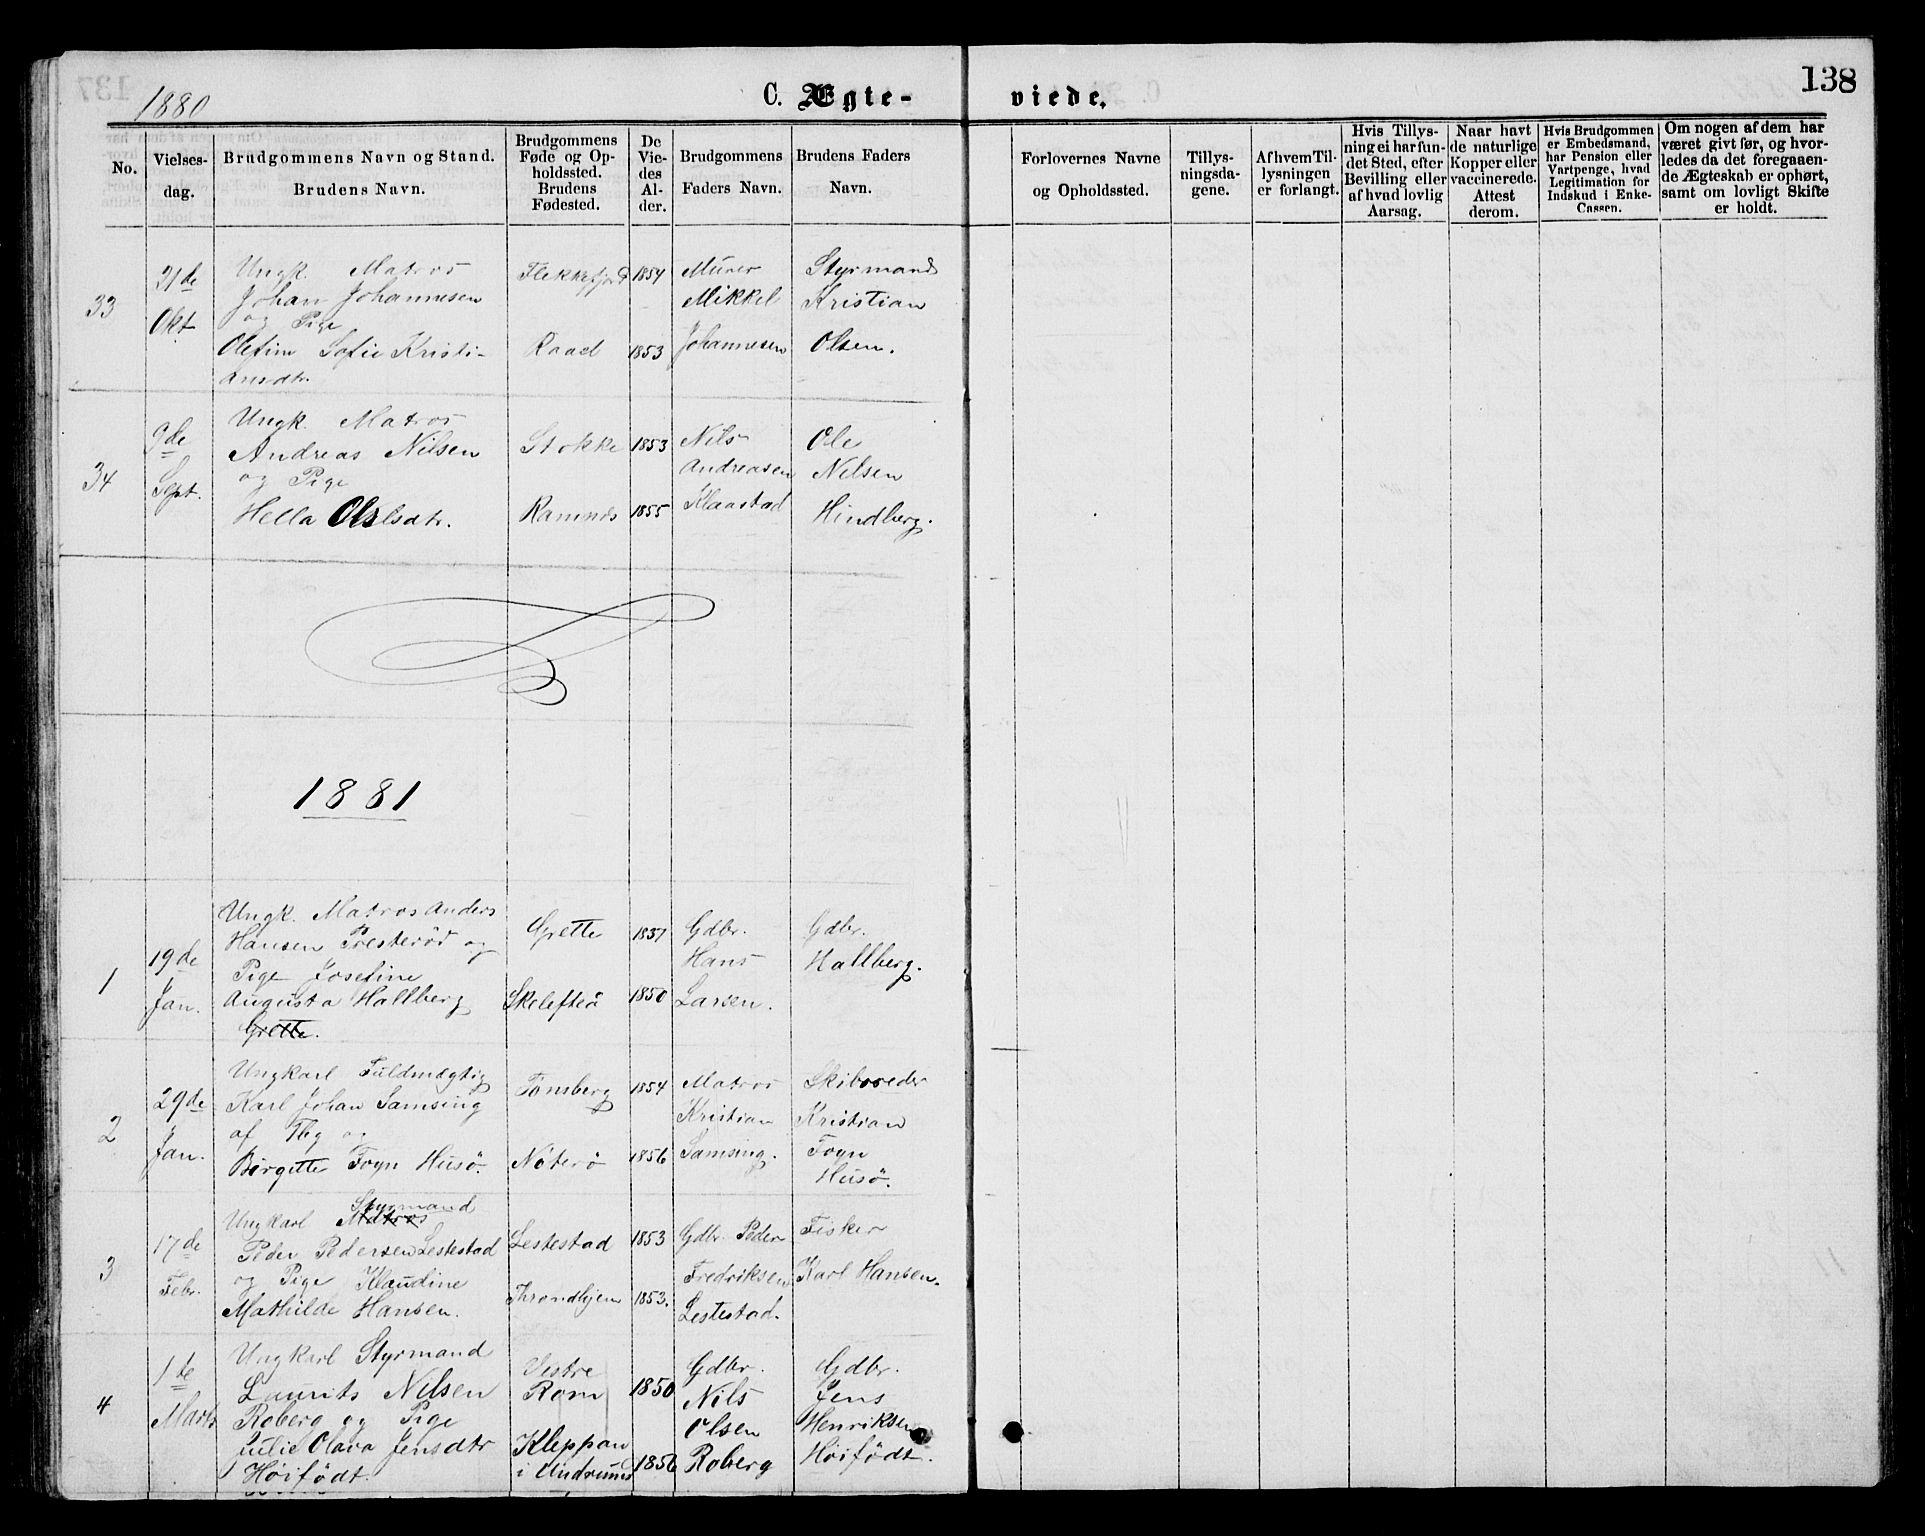 138
1880
C. Ægte- viede.
No.
Vielses-
dag.
Brudgommens Navn og Stand.
Brudens Navn.
Brudgommens
Føde og Op-
holdssted.
Brudens
Fødested.
De
Vie-
des
Al-
der.
Brudgommens
Faders Navn.
Brudens Faders
Navn.
Forlovernes Navne
og Opholdssted.
Tillys-
ningsda-
gene.
Af hvem Til-
lysningen
er forlangt.
Hvis Tillys-
ning ei har fun-
det Sted, efter
Bevilling eller
af hvad lovlig
Aarsag.
Naar havt
de naturlige
Kopper eller
vaccinerede.
Attest
derom.
Hvis Brudgommen
er Embedsmand,
har Pension eller
Vartpenge, hvad
Legitimation for
Indskud i Enke-
Cassen.
Om nogen af dem har
været givt før, og hvor-
ledes da det foregaaen-
de Ægteskab er ophørt,
samt om lovligt Skifte
er holdt.
33
21de
Okt
Ungk. Matros
Johan Johannesen
og Pige
Olefine Sofie Kristi-
ansdtr.
Flekkefjord
Raael
1854
1853
Murer
Mikkel
Johannesen
Styrmand
Kristian
Olsen.
34
9de
Sept.
Ungk. Matros
Andreas Nilsen
og Pige
Hella Olsdtr.
Stokke
Ramnes
1853
1855
Nils
Andreasen
Klaastad
Ole
Nilsen
Hindberg.
1881
1
19de
Jan.
Ungk. Matros Anders
Hansen Presterød og
Pige Josefine
Augusta Hallberg
Grette.
Grette
Skelefteå
1857
1850
Gdbr.
Hans
Larsen.
Gdbr.
Hallberg.
2
29de
Jan.
Ungkarl Fuldmægtig
Karl Johan Samsing
af Tbg og
Birgitte Fogn Husö.
Tönsberg
Nöterö
1854
1856
Matros
Kristian
Samsing.
Skibsreder
Kristian
Fogn
Husö.
3
17de
Febr.
Styrmand
Ungkarl Matros
Peder Pedersen Lestestad
og Pige Klaudine
Mathilde Hansen.
Lestestad
Throndhjem
1853
1853.
Gdbr. Peder
Fredriksen
Lestestad.
Fisker
Karl Hansen.
4
1te
Marts
Ungkarl Styrmand
Laurits Nilsen
Roberg og Pige
Julie Olava Jensdtr
Höifödt.
Vestre
Rom
Kleppan
i Undrumd
1850
1856
Gdbr.
Nils
Olsen
Roberg
Gdbr.
Jens
Henriksen
Höifödt.